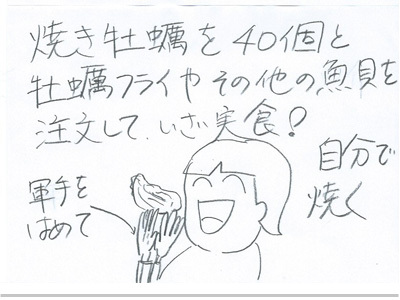 焼き牡蠣を40個と
牡蠣フライやその他の魚貝を
注文して、いざ実食!
自分で
焼く
軍手を
はめて